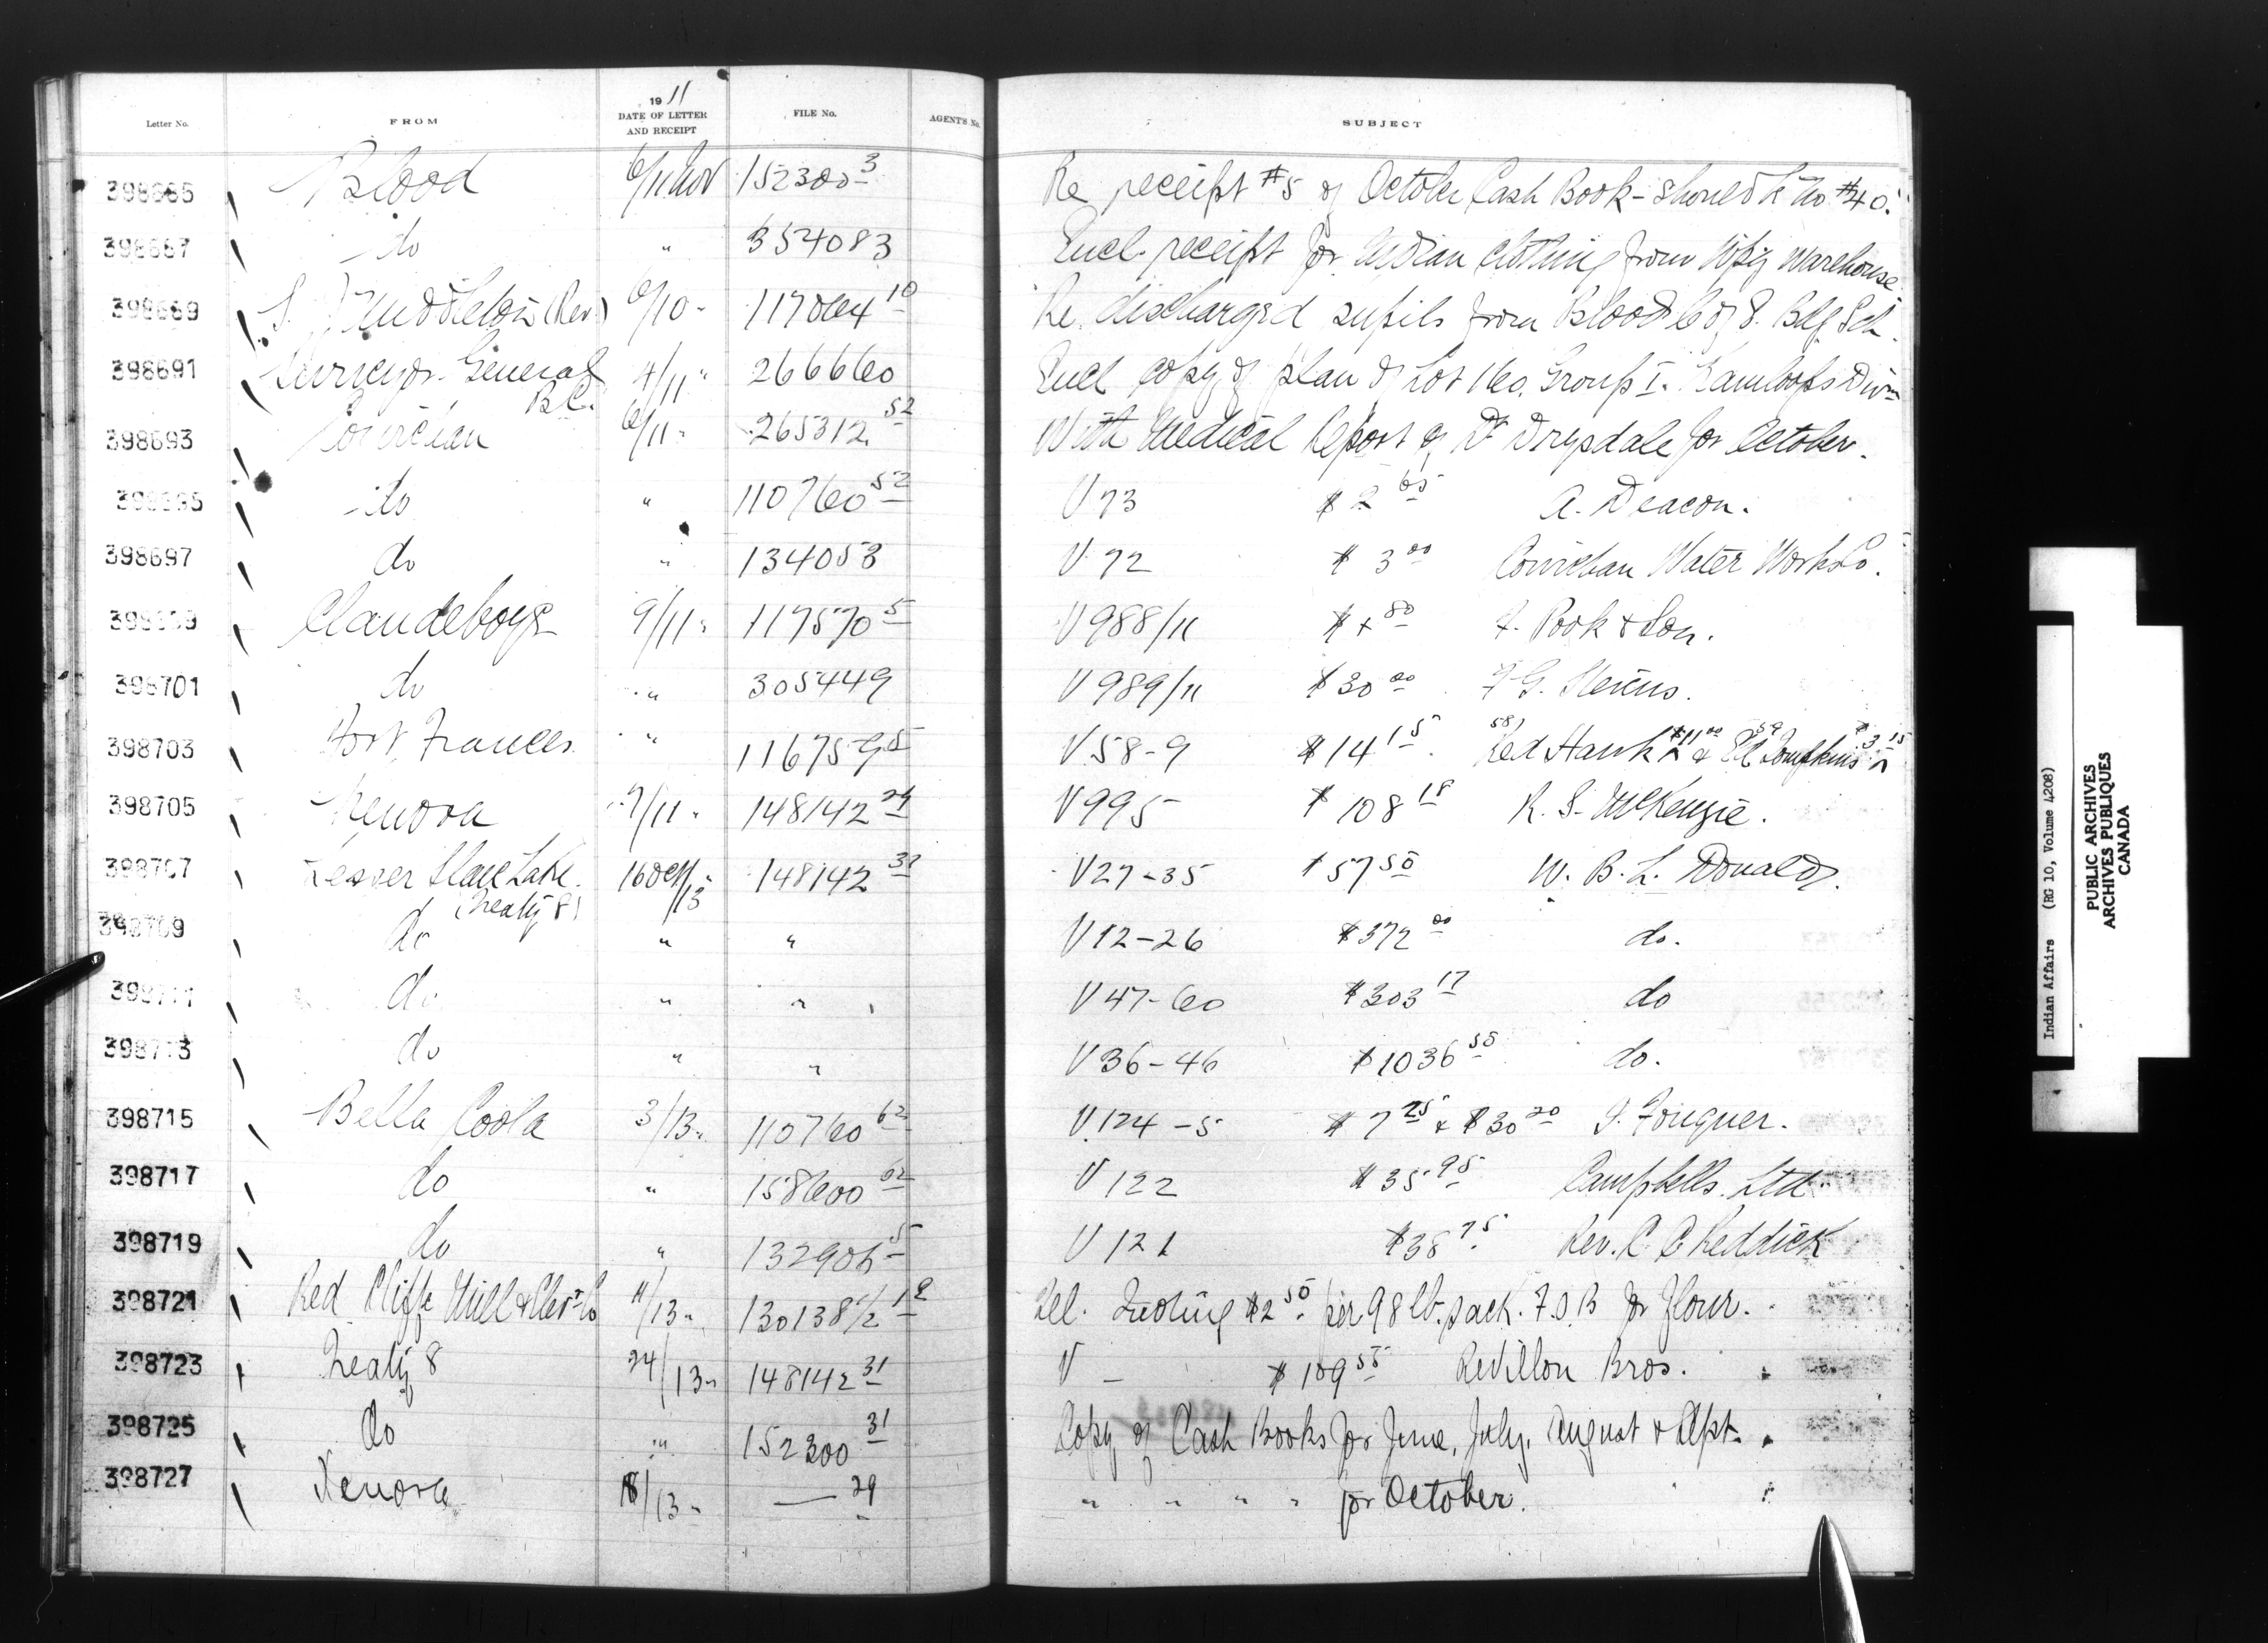 Letter No. FROM 1911 DATE OF LETTER AND RECEIPT FILE No. AGENT'S No. SUBJECT
398685 Blood 6/11 Nov 152300-3 Re receipt #5 of October Cash Book - should be No #40.
398687 do " 354083 Encl. receipt for Indian clothing from Wpg Warehouse
398689 S. Middleton (Rev) 6/10 " 117064 10 Re. discharged pupils from Blood C of E. Bdg Sch.
398691 Surveyor General B.C. 4/11 " 266660 Encl copy of plan of Lot 160. Group I. Kamloops Divn
398693 Cowichan 6/11 " 265312 52 With Medical Report of Dr Drysdale for October.
398695 do " 110760 52 V 73 $2 65 A. Deacon.
398697 do " 134053 V 72 $3 00 Cowichan Water Works Co.
398699 Clandeboye 9/11 " 117570 5 V 988/11 $ 80 F. Pook & Son.
398701 do " 305449 V 989/11 $30 00 F G.
398703 Fort Frances " 116759 5 V 58-9 $14 15 58) Red Hawk $11 00 & 59 Ed Tompkins $3 15
398705 Kenora 7/11 " 148142 29 V 995 $108 18 R. S. McKenzie.
398707 Lesser Slave Lake (Treaty 8) 16 Oct/13 148142 31 V 27-35 $57 50 W. B. L. Donald.
398709 do " " V 12-26 $372 00 do.
398711 do " " V 47-60 $303 17 do
398713 do " " V 36-46 $1036 55 do.
398715 Bella Coola 3/13 " 110760 62 V 124-5 $7 25 & $30 20 Fougner.
398717 do " 158600 62 V 122 $35 95 Campbells Ltd
398719 do " 5 V 121 $38 75 Rev. Reddick
398721 Red Cliff Mill & Elevr Co 11/13 " 130138 1/2 Tel. Quoting $2 50 per 98 lb. sack. F.O.B for flour.
398723 Treaty 8 24/13 " 148142 31 V - $109 55 Revillon Bros.
398725 do " 152300 31 Copy of Cash Books for June, July, August & Sept.
398727 Kenora 8/13 " — 29 " " " " for October.
Indian Affairs (RG 10, Volume 4208)
PUBLIC ARCHIVES
ARCHIVES PUBLIQUES
CANADA